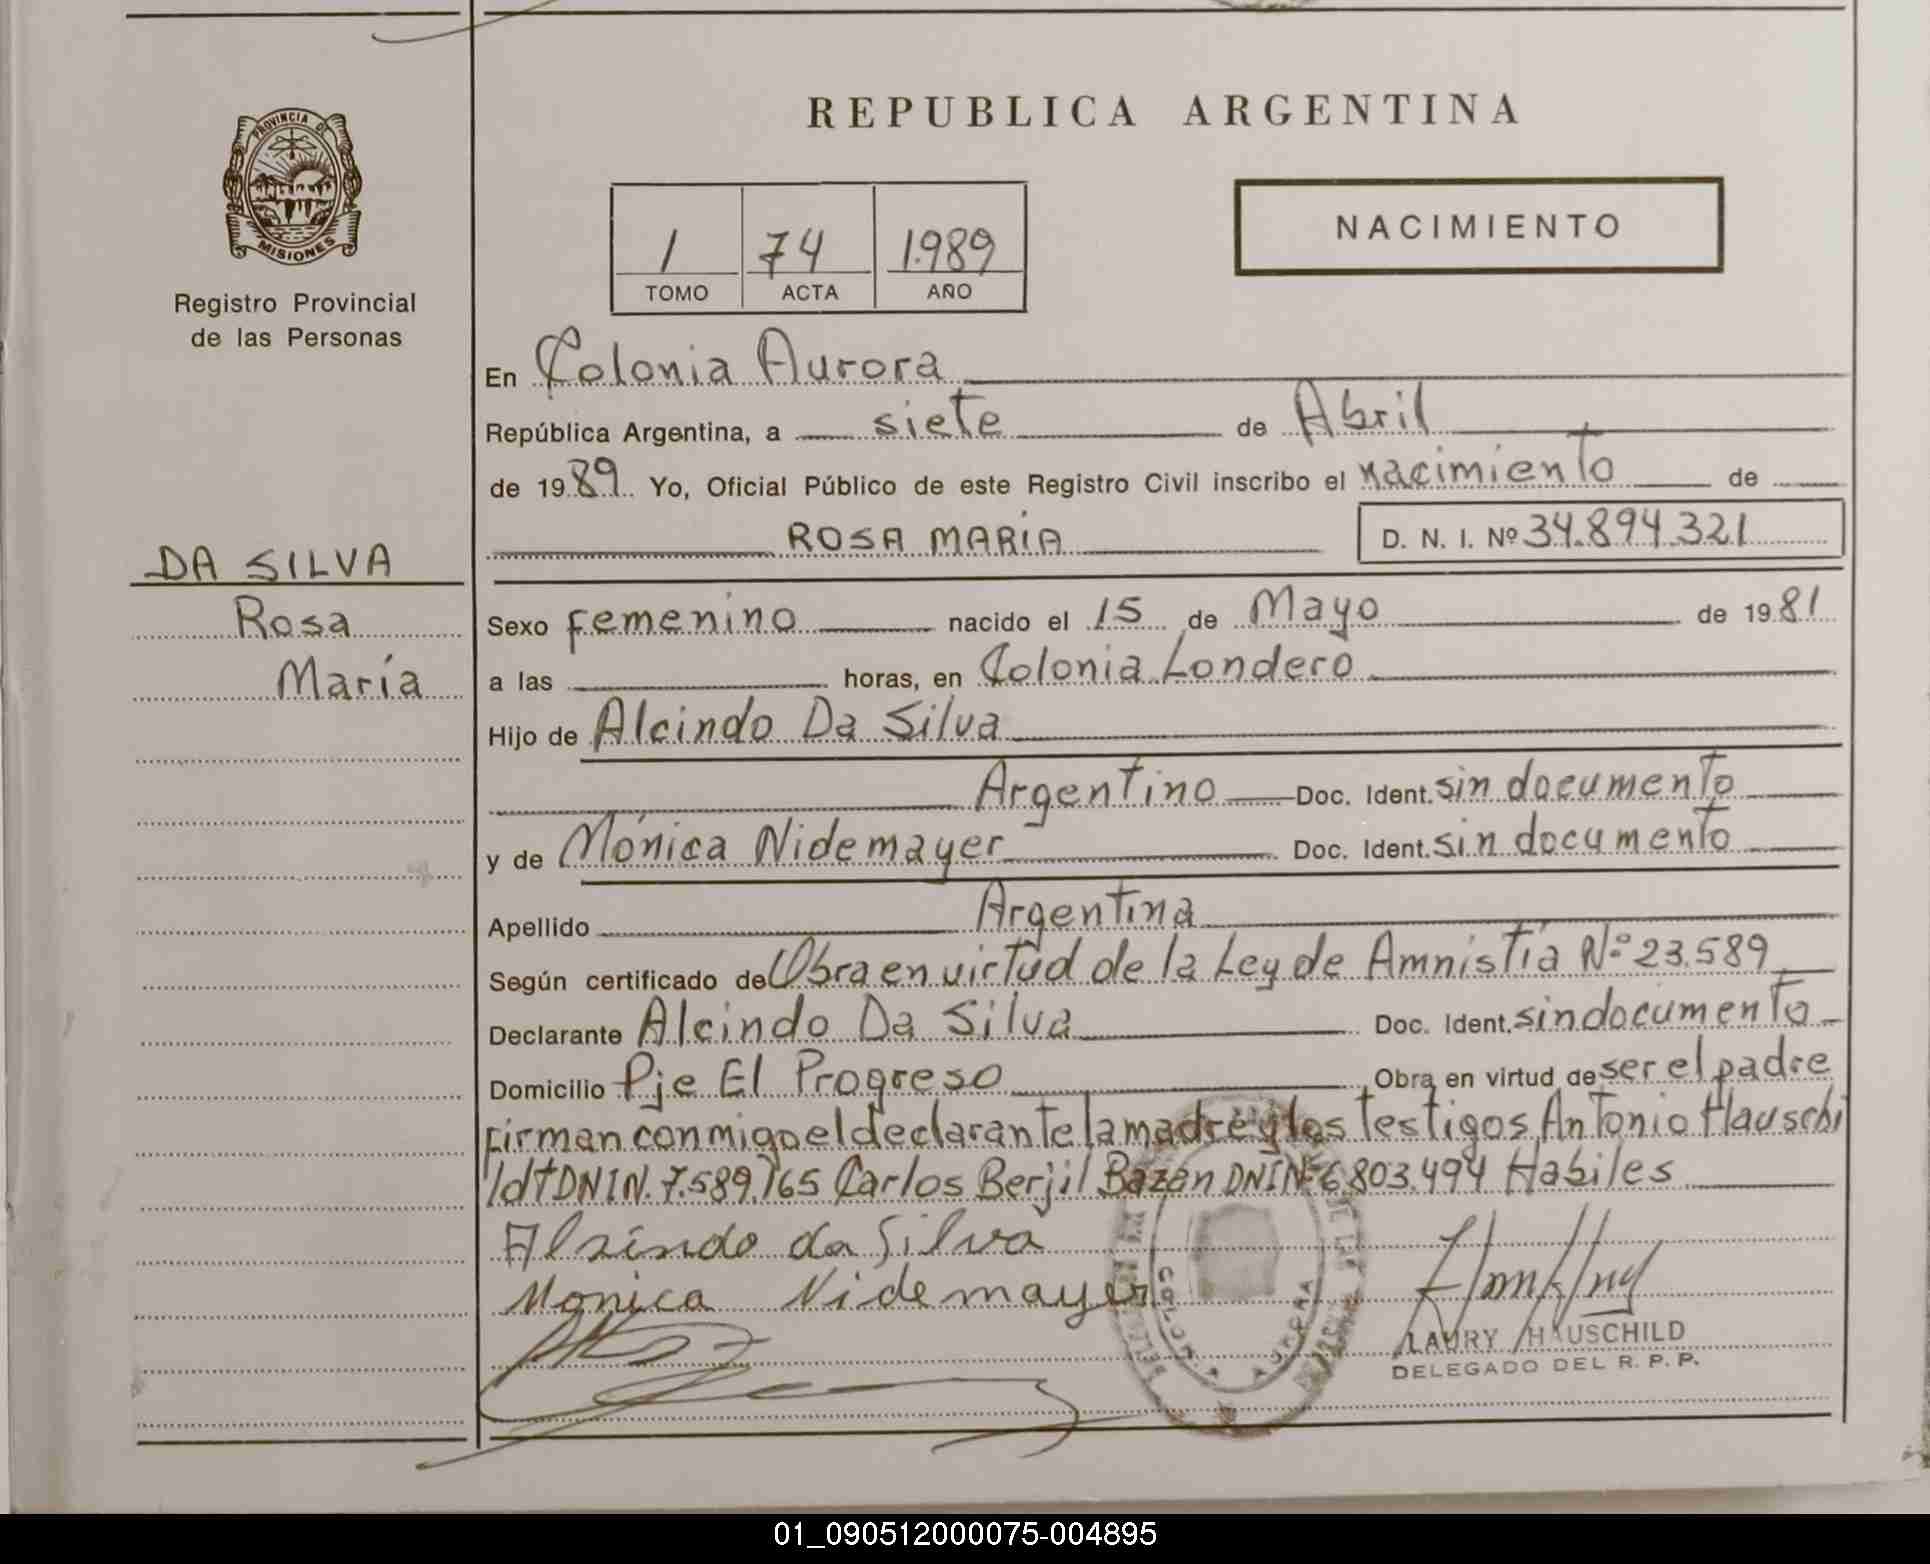 PROVINCIA DE
MISIONES
Registro Provincial
de las Personas
DA SILVA
Rosa
María
REPUBLICA ARGENTINA
1 74 1.989
TOMO ACTA AÑO
NACIMIENTO
En Colonia Aurora
República Argentina, a siete de Abril
de 1989. Yo, Oficial Público de este Registro Civil inscribo el nacimiento de
ROSA MARÍA D. N. I. Nº 34.894.321
Sexo femenino nacido el 15 de Mayo de 1981
a las horas, en Colonia Londero
Hijo de Alcindo Da Silva
Argentino Doc. Ident. sin documento
y de Mónica Nidemayer Doc. Ident. sin documento
Apellido Argentina
Según certificado de Obra en virtud de la Ley de Amnistía Nº 23.589
Declarante Alcindo Da Silva Doc. Ident. sin documento
Domicilio Pje El Progreso Obra en virtud de ser el padre
firman conmigo el declarante la madre y los testigos Antonio Hauschi
ldt DNI N. 7.589.765 Carlos Berjil Bazán DNI Nº 6.803.494 Habiles
Alsindo da Silva
Monica Nidemayer
COLONIA AURORA
LAURY HAUSCHILD
DELEGADO DEL R. P. P.
01_090512000075-004895